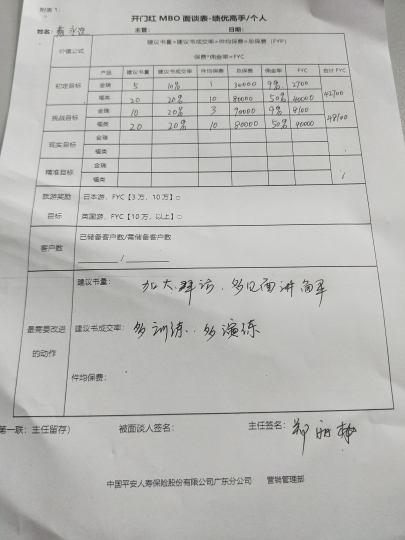 附表1:
开门红 MBO 面谈表-绩优高手/个人
姓名: 主管: 日期:
价值公式 建议书量*建议书成交率*件均保费=总保费 (FYP)
保费*佣金率=FYC
产品 建议书量 建议书成交率 件均保费 总保费 佣金率 FYC 合计 FYC
初定目标 金瑞 5 10% 1 30000 9% 2700 42700
福类 20 20% 10 80000 50% 40000
挑战目标 金瑞 10 20% 3 90000 9% 8100 48100
福类 20 20% 10 80000 50% 40000
现实目标 金瑞
福类
精准目标 金瑞
福类
旅游奖励 日本游,FYC【3 万,10 万】□
目标 英国游,FYC【10 万,以上】□
客户数 已储备客户数/需储备客户数
/
最需要改进的动作
建议书量: 加大拜访,多见面讲简单
建议书成交率: 多训练、多演练
件均保费:
第一联:主任留存) 被面谈人签名: 主任签名:
中国平安人寿保险股份有限公司广东分公司 营销管理部